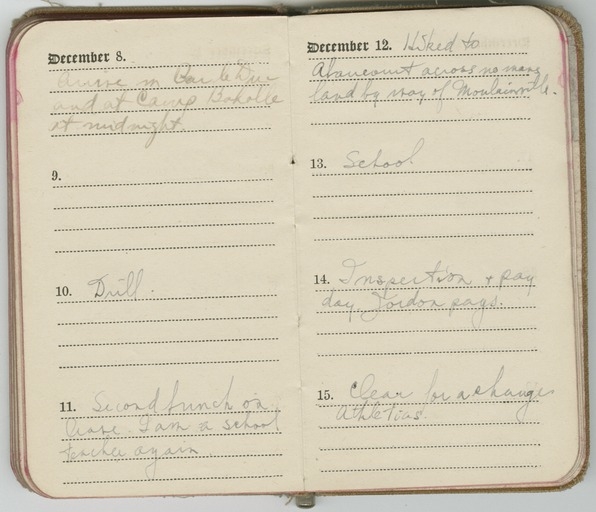 December 8.
Arrive in Bar le Duc
and at Camp
at midnight.
9.
10. Drill.
11. Second bunch on
leave. I am a school
teacher again.
December 12. Hiked to
Abaucourt across no mans
land by way of Moulainville.
13. School
14. Inspection + pay
day. Jordon pays.
15. Clear for a change
Athletics.